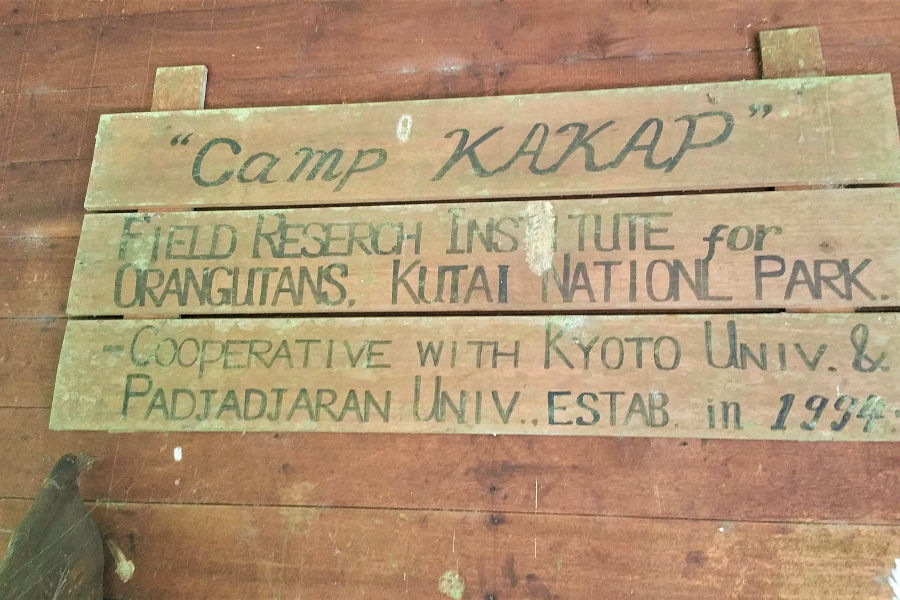 "Camp KAKAP"
FIELD RESERCH INSTITUTE for
ORANGUTANS, KUTAI NATIONL PARK.
-COOPERATIVE WITH KYOTO UNIV. &
PADJADJARAN UNIV., ESTAB. in 1994.